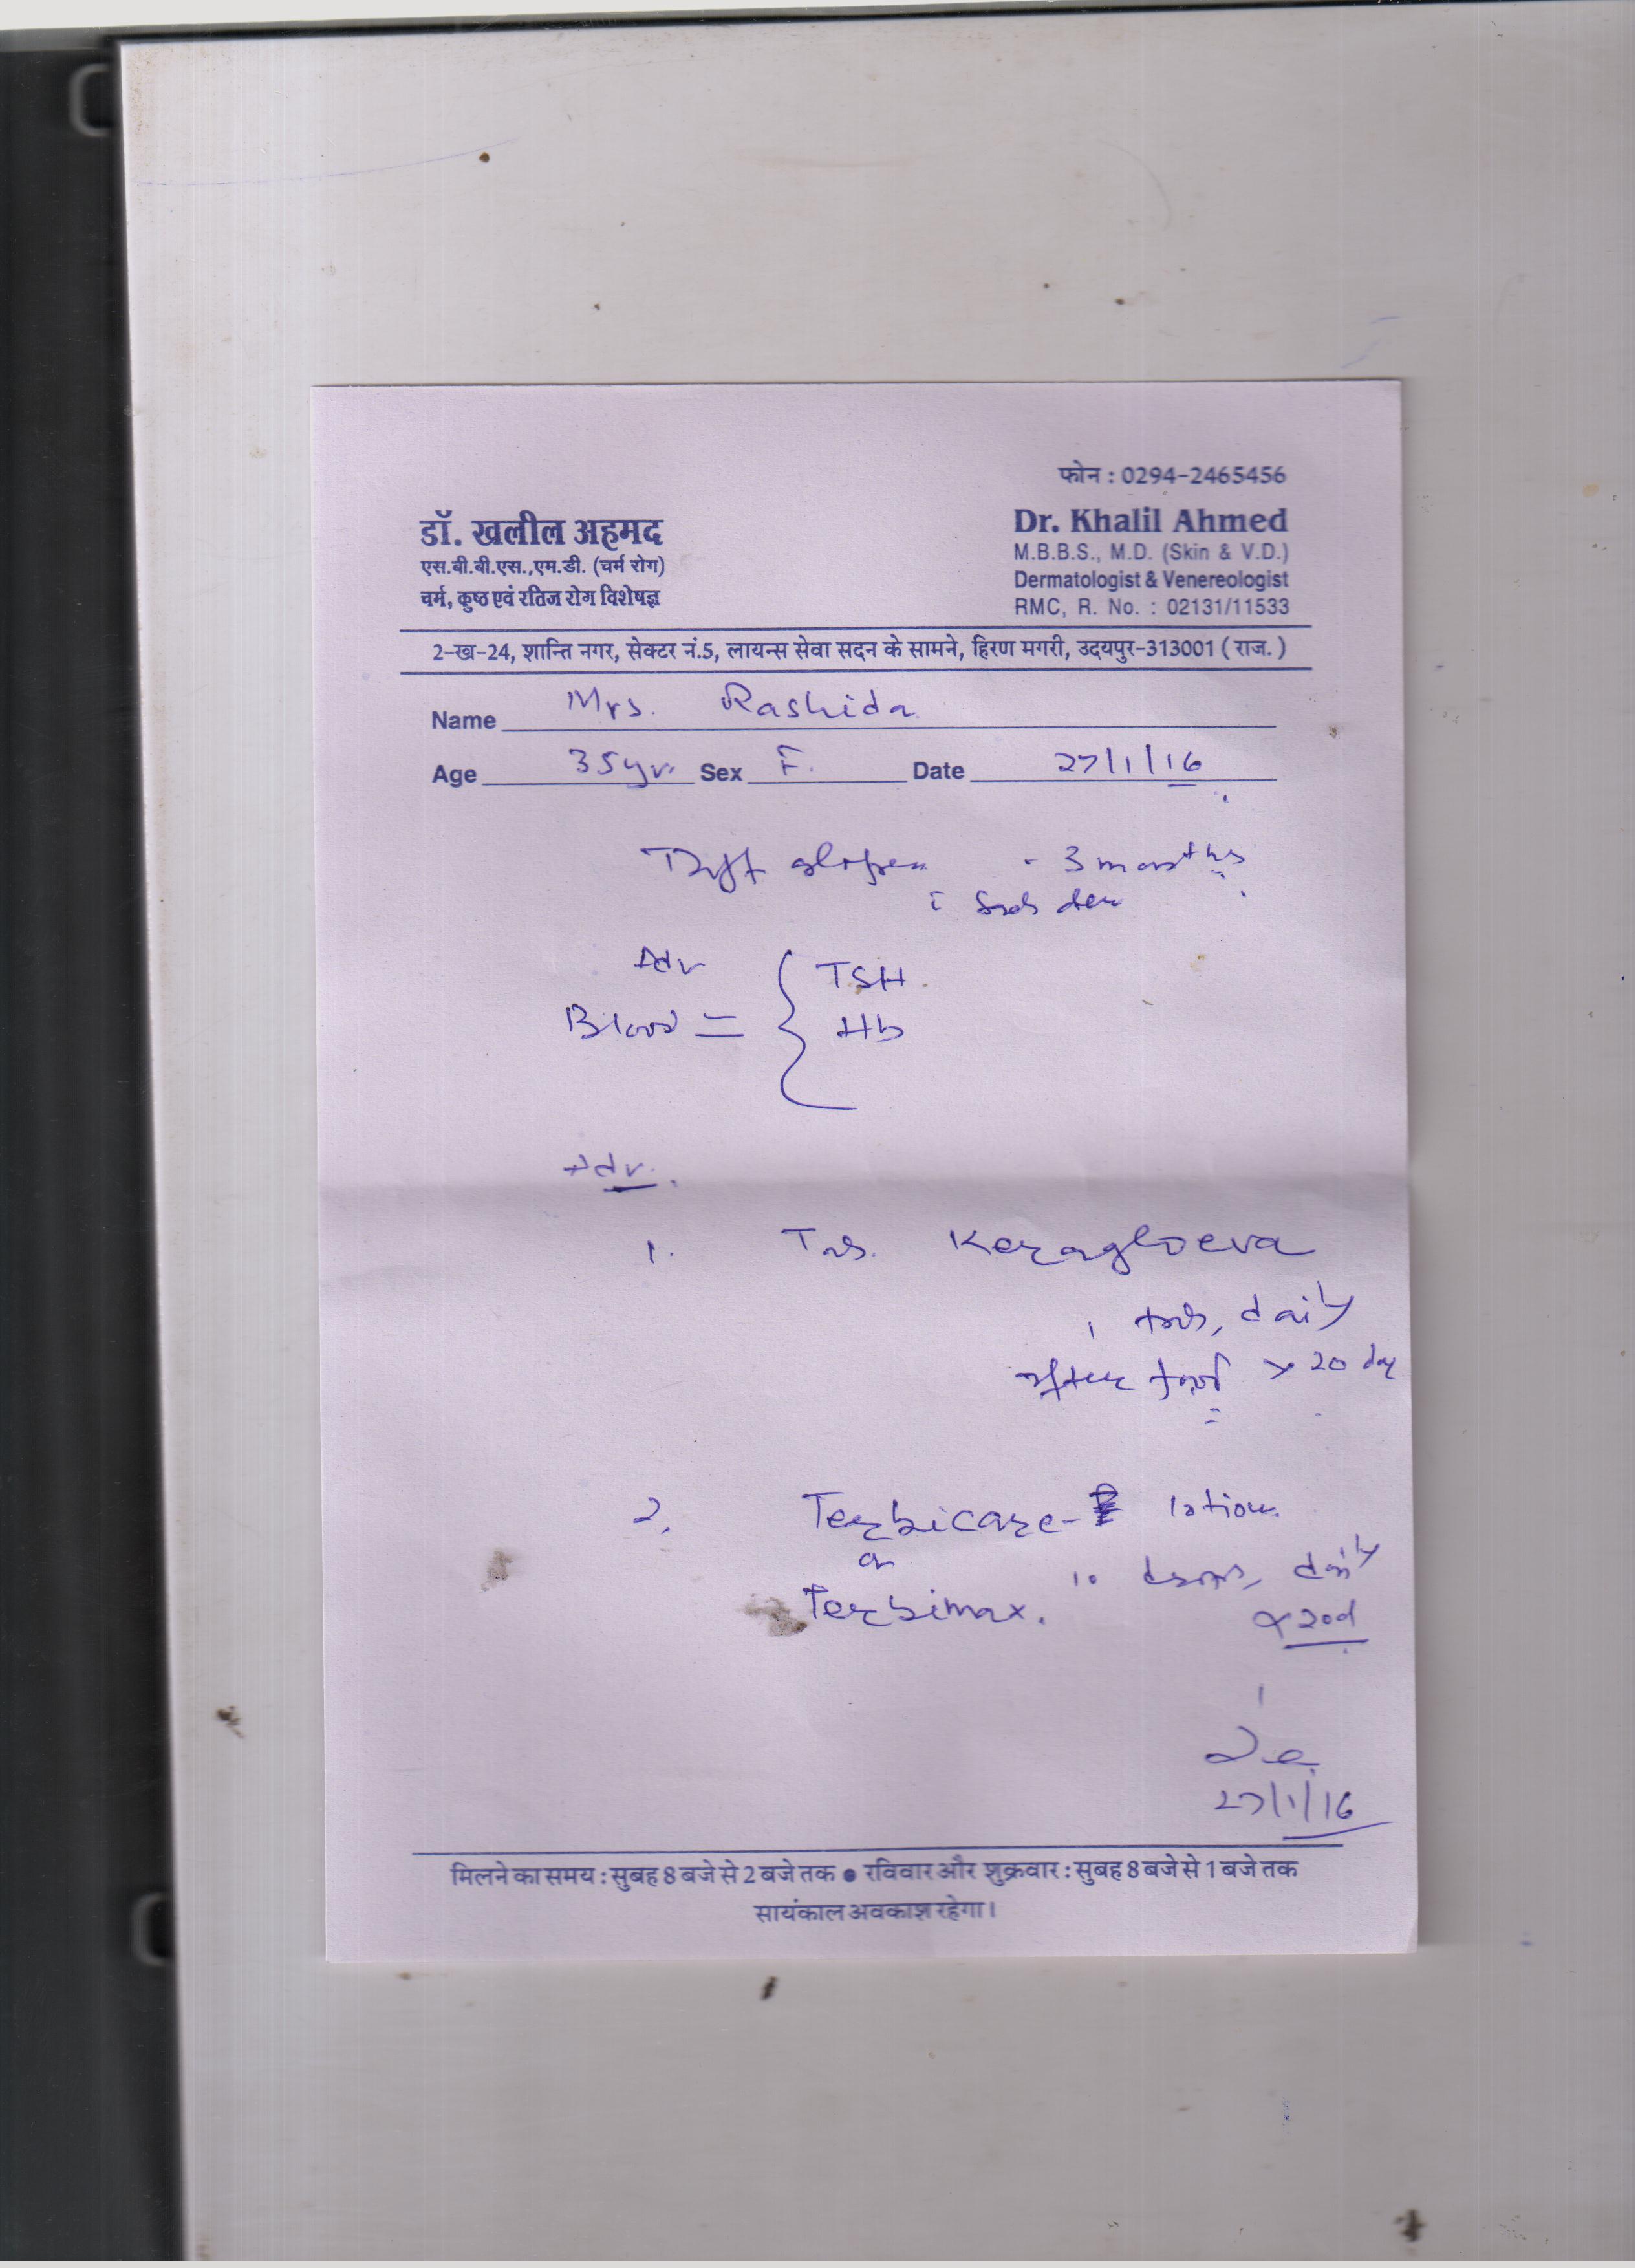 फोन : 0294-2465456
डॉ. खलील अहमद
एस.बी.बी.एस.,एम.डी. (चर्म रोग)
चर्म, कुष्ठ एवं रतिज रोग विशेषज्ञ
Dr. Khalil Ahmed
M.B.B.S., M.D. (Skin & V.D.)
Dermatologist & Venereologist
RMC, R. No. : 02131/11533
2-ख-24, शान्ति नगर, सेक्टर नं.5, लायन्स सेवा सदन के सामने, हिरण मगरी, उदयपुर-313001 ( राज. )
Name Mrs. Rashida
Age 35yr. Sex F. Date 27/1/16
Diff - 3 months
Adv
Blood = { TSH.
Hb
Adv.
1. Tab. Keragloeva
1 tab, daily
after food x 20 day
2. Terbicare- lotion.
or
10 drops, daily
Terbimax.
x 20d
27/1/16
मिलने का समय : सुबह 8 बजे से 2 बजे तक ● रविवार और शुक्रवार : सुबह 8 बजे से 1 बजे तक
सायंकाल अवकाश रहेगा।